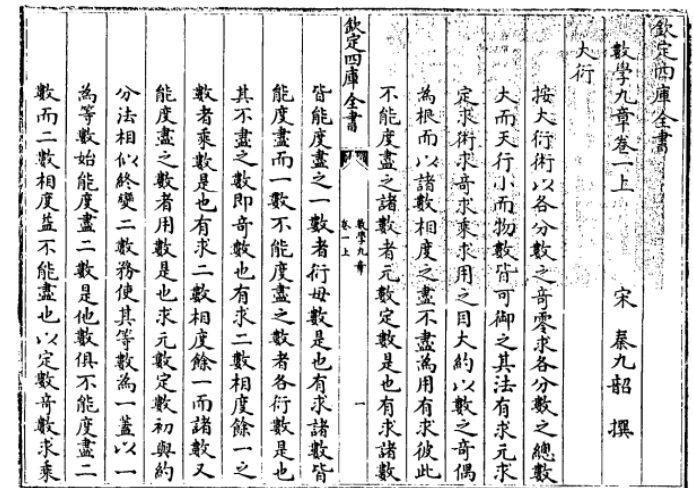 欽定四庫全書
數學九章卷一上
宋 秦九韶 撰
大衍
按大衍術以各分數之奇零求各分數之總數
大而天行小而物數皆可御之其法有求元求
定求衍求奇求乘求用之目大約以數之奇偶
為根而以諸數相度之盡不盡為用有求彼此
不能度盡之諸數者元數定數是也有求諸數
欽定四庫全書
數學九章
卷一上
一
皆能度盡之一數者衍母數是也有求諸數皆
能度盡而一數不能度盡之數者各衍數是也
其不盡之數即奇數也有求二數相度餘一之
數者乘數是也有求二數相度餘一而諸數又
能度盡之數者用數是也求元數定數初與約
分法相似終變二數務使其等數為一蓋以一
為等數始能度盡二數是他數俱不能度盡二
數而二數相度益不能盡也以定數奇數求乘